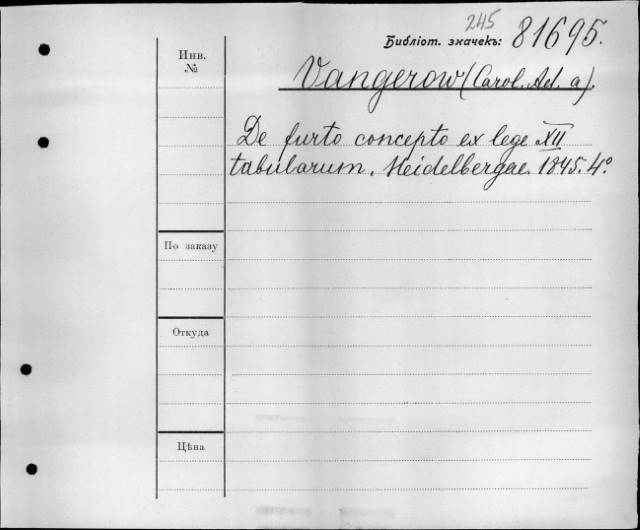 245
Библіот. значекъ: 81695.
Инв. №
Vangerow (Carol. Ad. a).
De furto concepto ex lege XII
tabularum. Heidelbergae. 1845. 4°
По заказу
Откуда
Цѣна